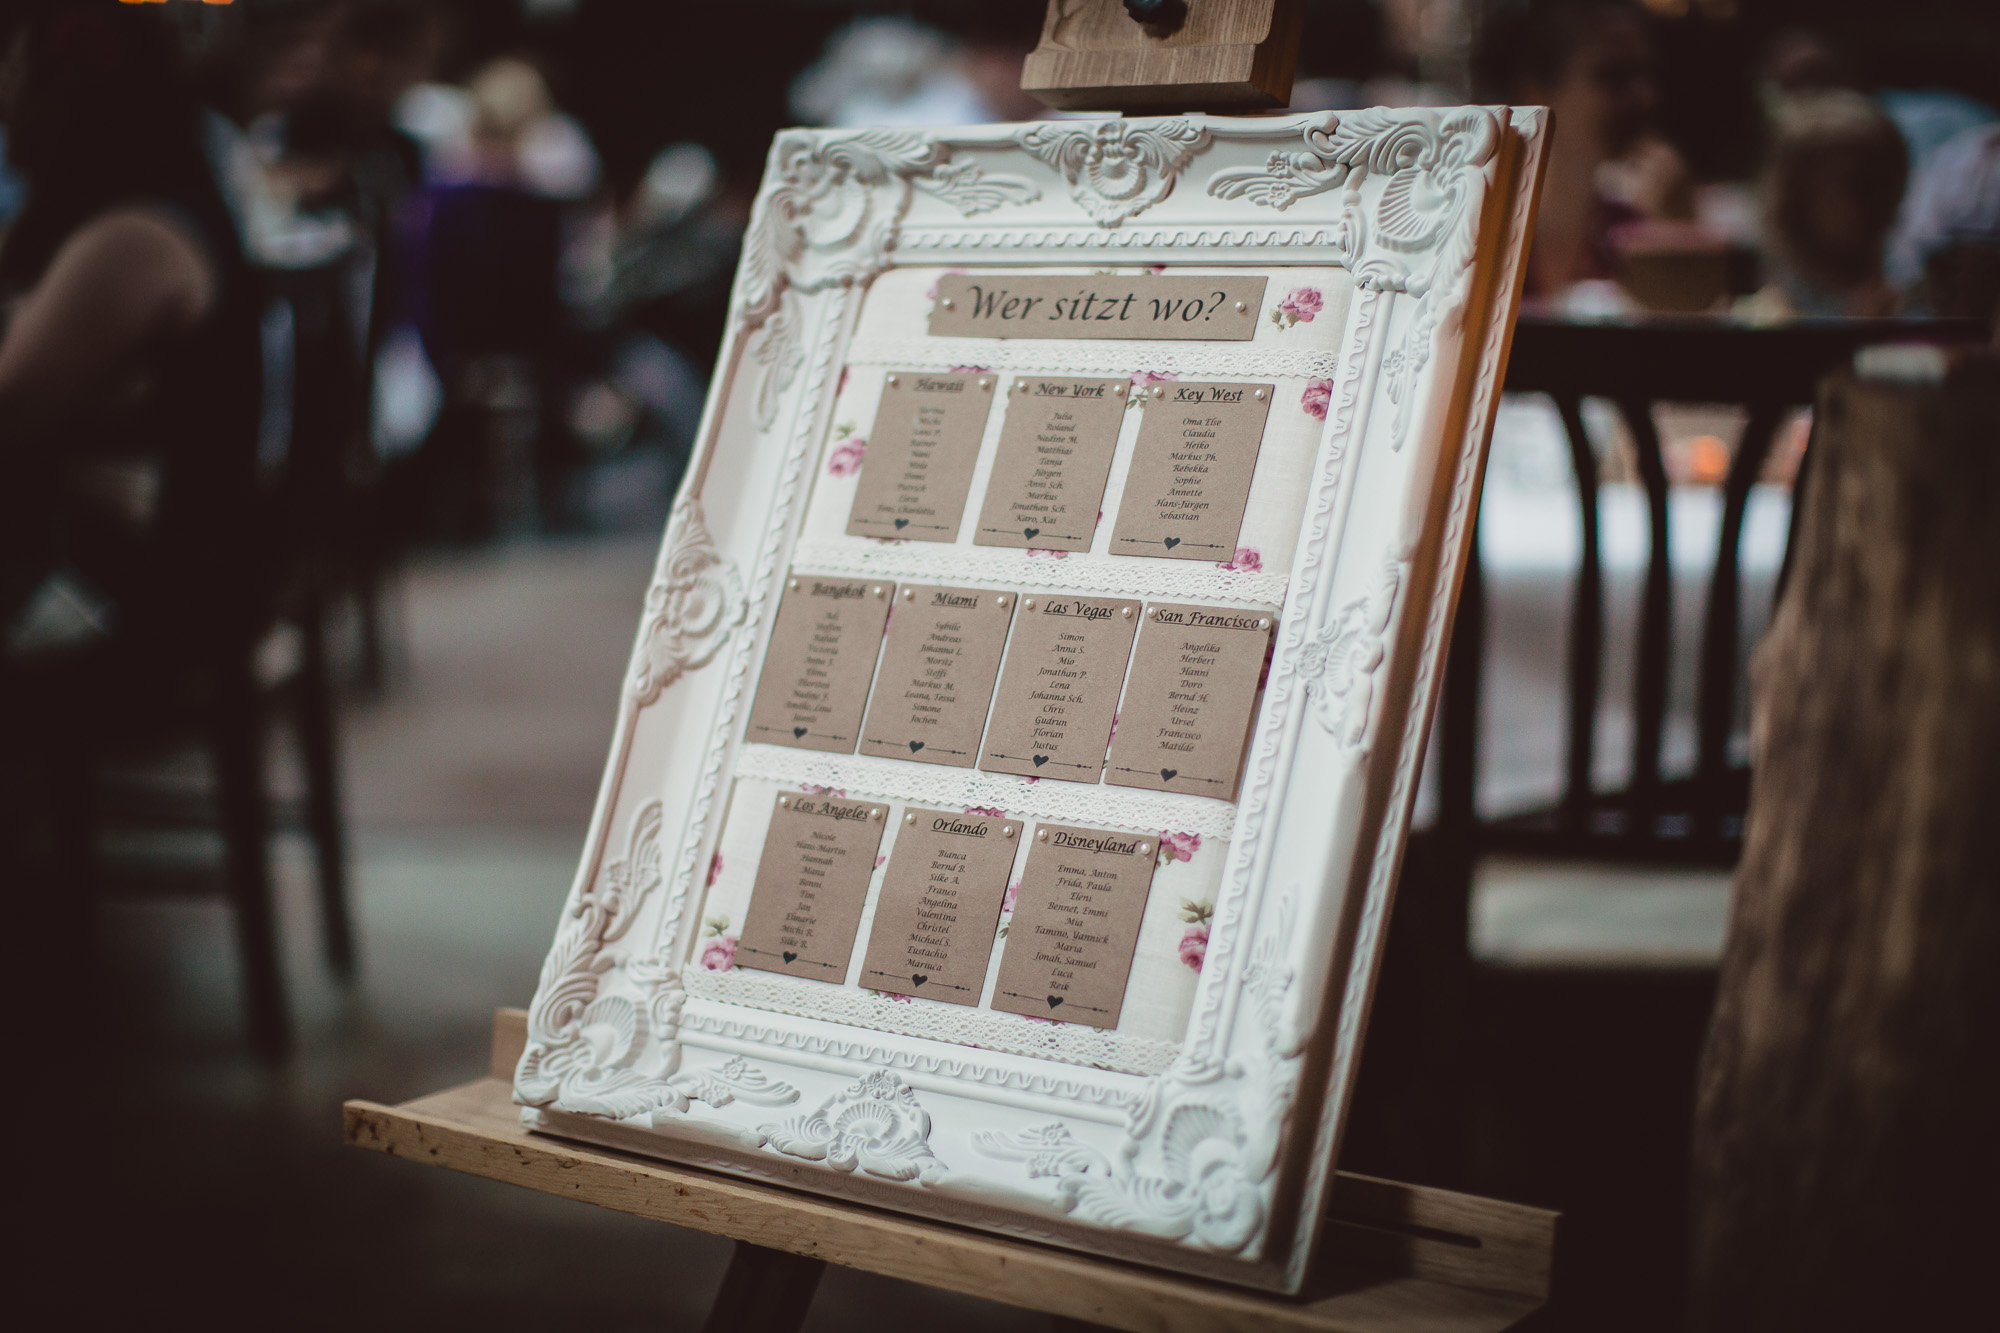 Wer sitzt wo?
Hawaii
Michi
Patrick
Tino, Charlotta
New York
Julia
Roland
Nadine M.
Matthias
Tanja
Jürgen
Anni Sch.
Markus
Jonathan Sch.
Karo, Kai
Key West
Oma Else
Claudia
Heiko
Markus Ph.
Rebekka
Sophie
Annette
Hans-Jürgen
Sebastian
Bangkok
Steffen
Rafael
Victoria
Anna F.
Elena
Thorsten
Nadine F.
Amélie, Lina
Miami
Sybille
Andreas
Johanna L.
Moritz
Steffi
Markus M.
Leana, Tessa
Simone
Jochen
Las Vegas
Simon
Anna S.
Mio
Jonathan P.
Lena
Johanna Sch.
Chris
Gudrun
Florian
Justus
San Francisco
Angelika
Herbert
Hanni
Doro
Bernd H.
Heinz
Ursel
Francisco
Matilde
Los Angeles
Nicole
Hans-Martin
Hannah
Manu
Benni
Tim
Jan
Elmarie
Michi R.
Silke R.
Orlando
Bianca
Bernd B.
Silke A.
Franco
Angelina
Valentina
Christel
Michael S.
Eustachio
Mariuca
Disneyland
Emma, Anton
Frida, Paula
Eleni
Bennet, Emmi
Mia
Tamino, Yannick
Maria
Jonah, Samuel
Luca
Reik